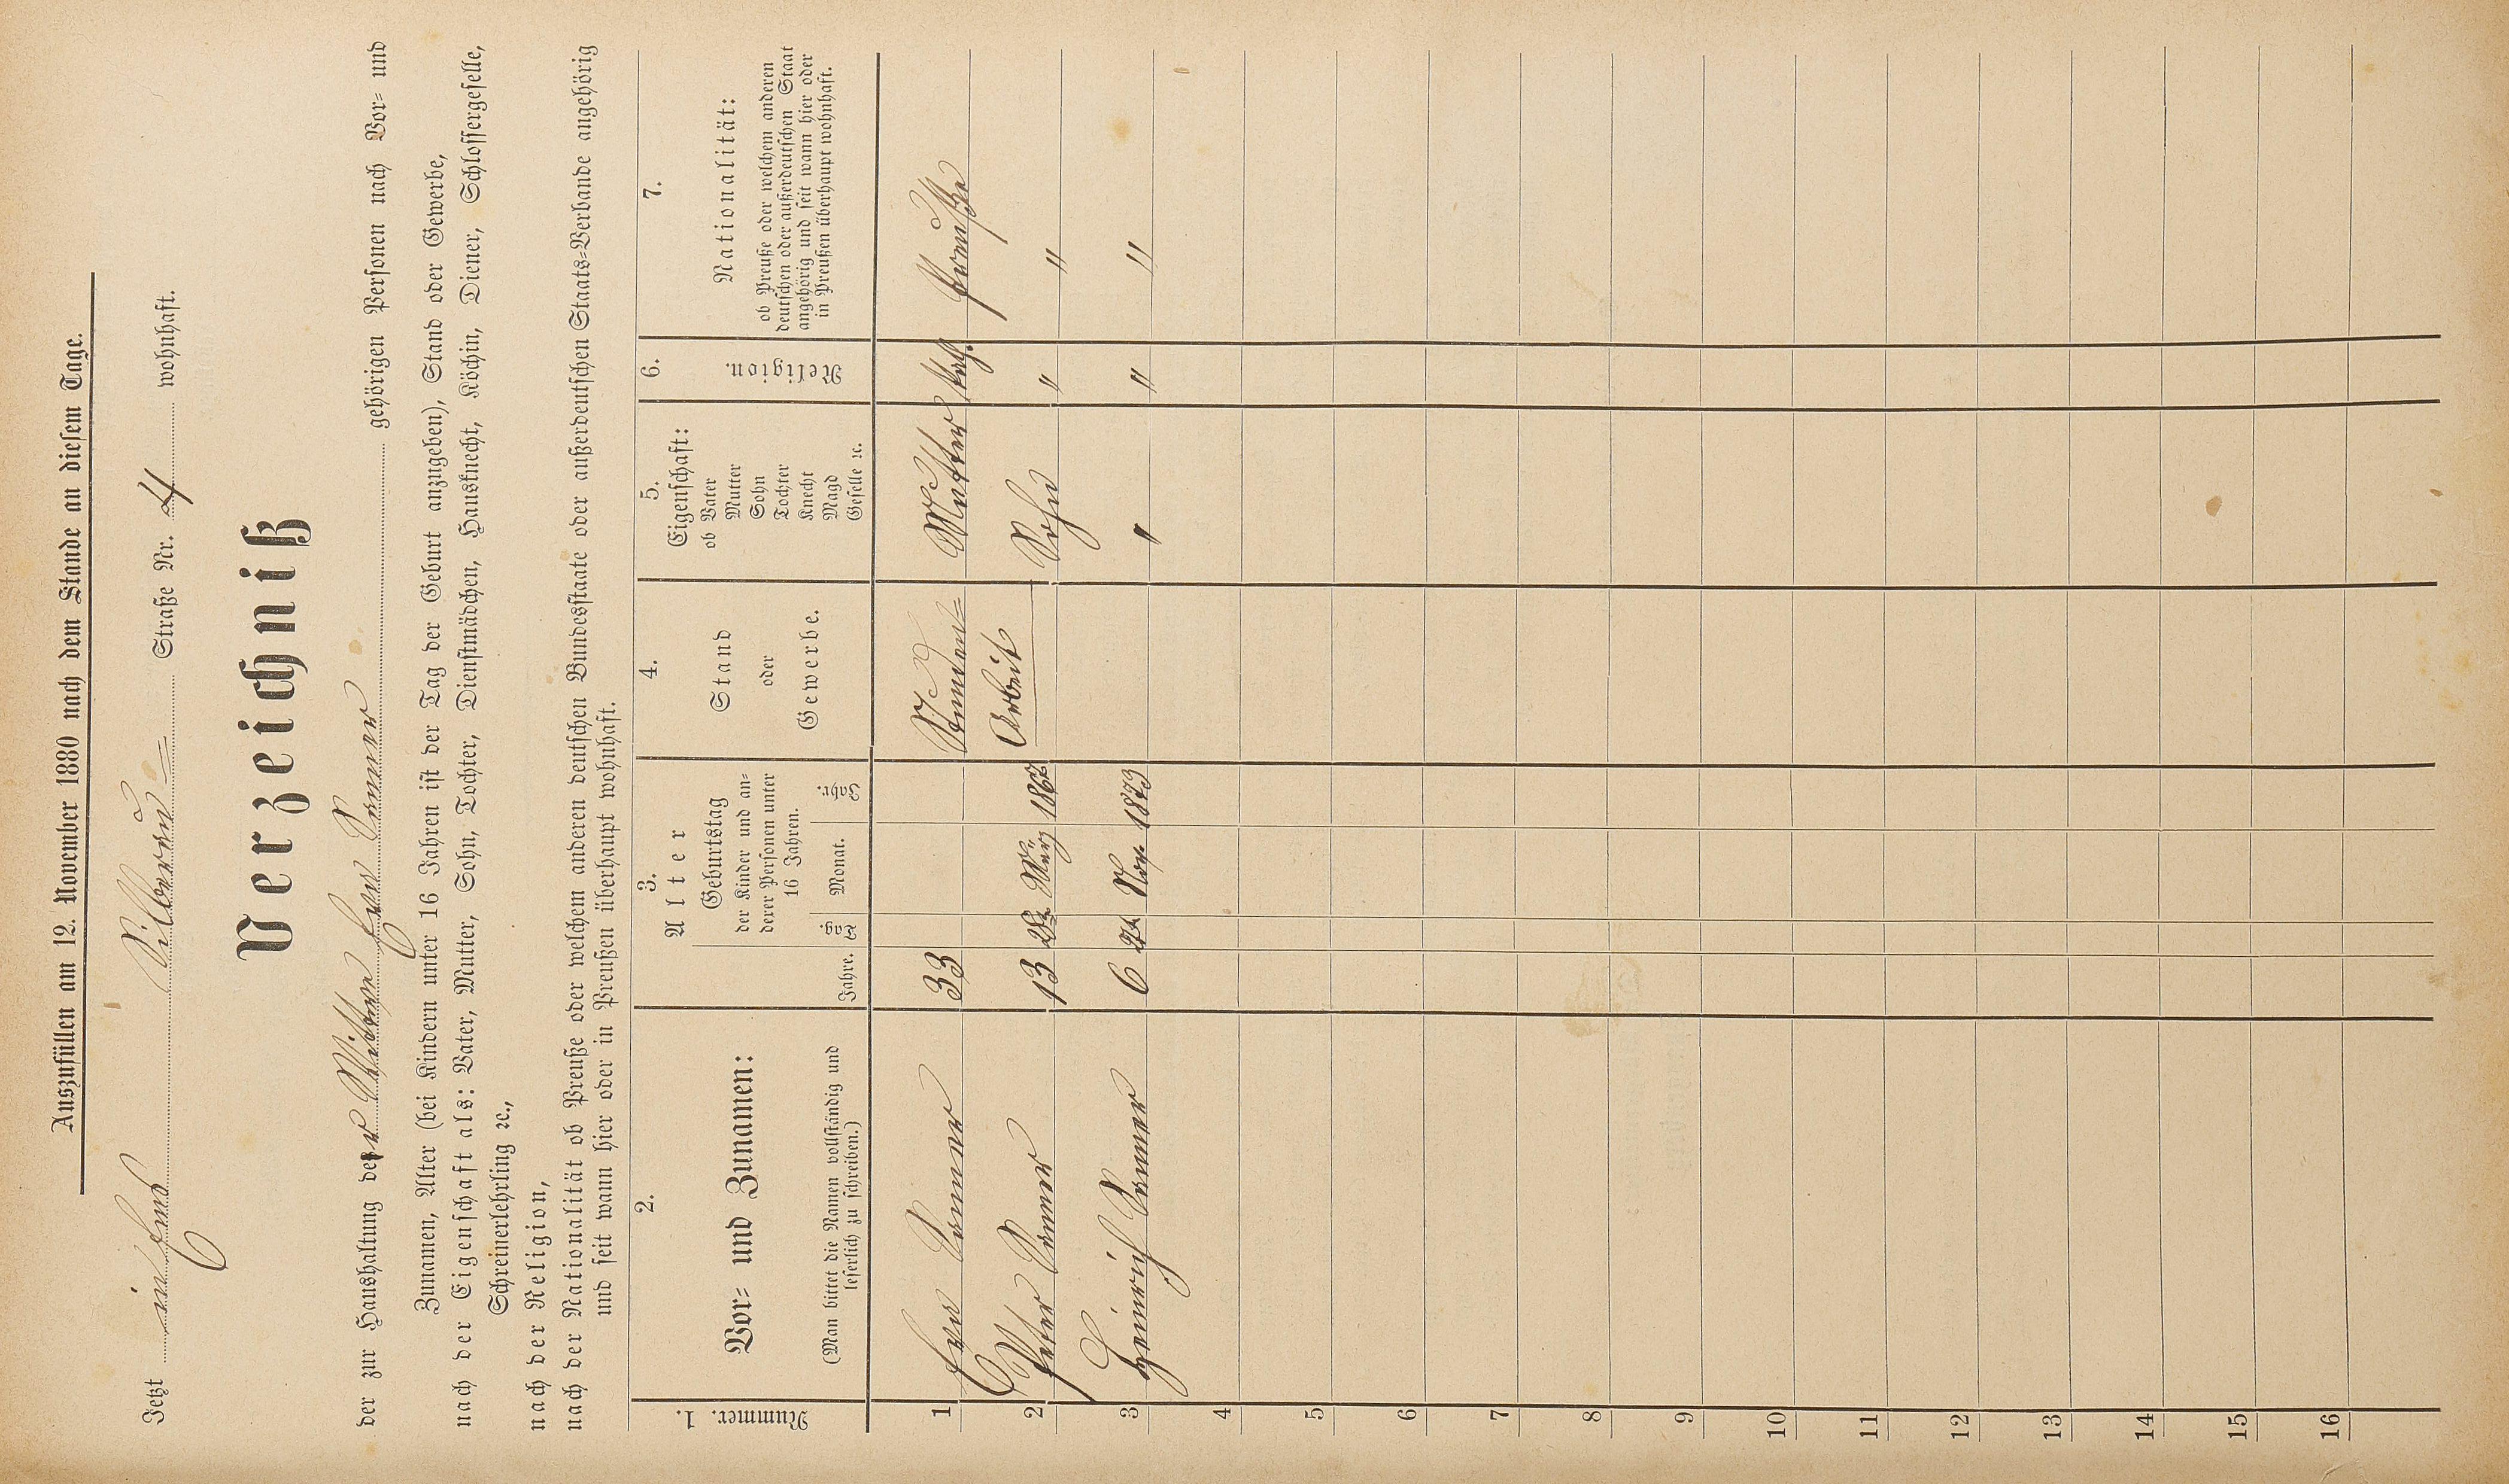 Auszufüllen am 12. November 1880 nach dem Stande an diesem Tage.
Jetzt in Ems Silberau= Straße Nr. 4 wohnhaft.
Verzeichniß
der zur Haushaltung der Wittwe Eva Sommer gehörigen Personen nach Vor= und
Zunamen, Alter (bei Kindern unter 16 Jahren ist der Tag der Geburt anzugeben), Stand oder Gewerbe,
nach der Eigenschaft als: Vater, Mutter, Sohn, Tochter, Dienstmädchen, Hausknecht, Köchin, Diener, Schlossergeselle,
Schreinerlehrling ꝛc.,
nach der Religion,
nach der Nationalität ob Preuße oder welchem anderen deutschen Bundesstaate oder außerdeutschen Staats=Verbande angehörig
und seit wann hier oder in Preußen überhaupt wohnhaft.
1. Nummer.
2. Vor= und Zunamen:
(Man bittet die Namen vollständig und
leserlich zu schreiben.)
3. Alter
Jahre.
Geburtstag
der Kinder und an=
derer Personen unter
16 Jahren.
Tag. Monat. Jahr.
4. Stand
oder
Gewerbe.
5. Eigenschaft:
ob Vater
Mutter
Sohn
Tochter
Knecht
Magd
Geselle ꝛc.
6. Religion.
7. Nationalität:
ob Preuße oder welchem anderen
deutschen oder außerdeutschen Staat
angehörig und seit wann hier oder
in Preußen überhaupt wohnhaft.
1 Eva Sommer 33 Mutter Kath. Preuße
2 Peter Sommer 13 März 1867 Arbeit Sohn " "
3 Heinrich Sommer 6 Nov. 1873 " " "
4
5
6
7
8
9
10
11
12
13
14
15
16